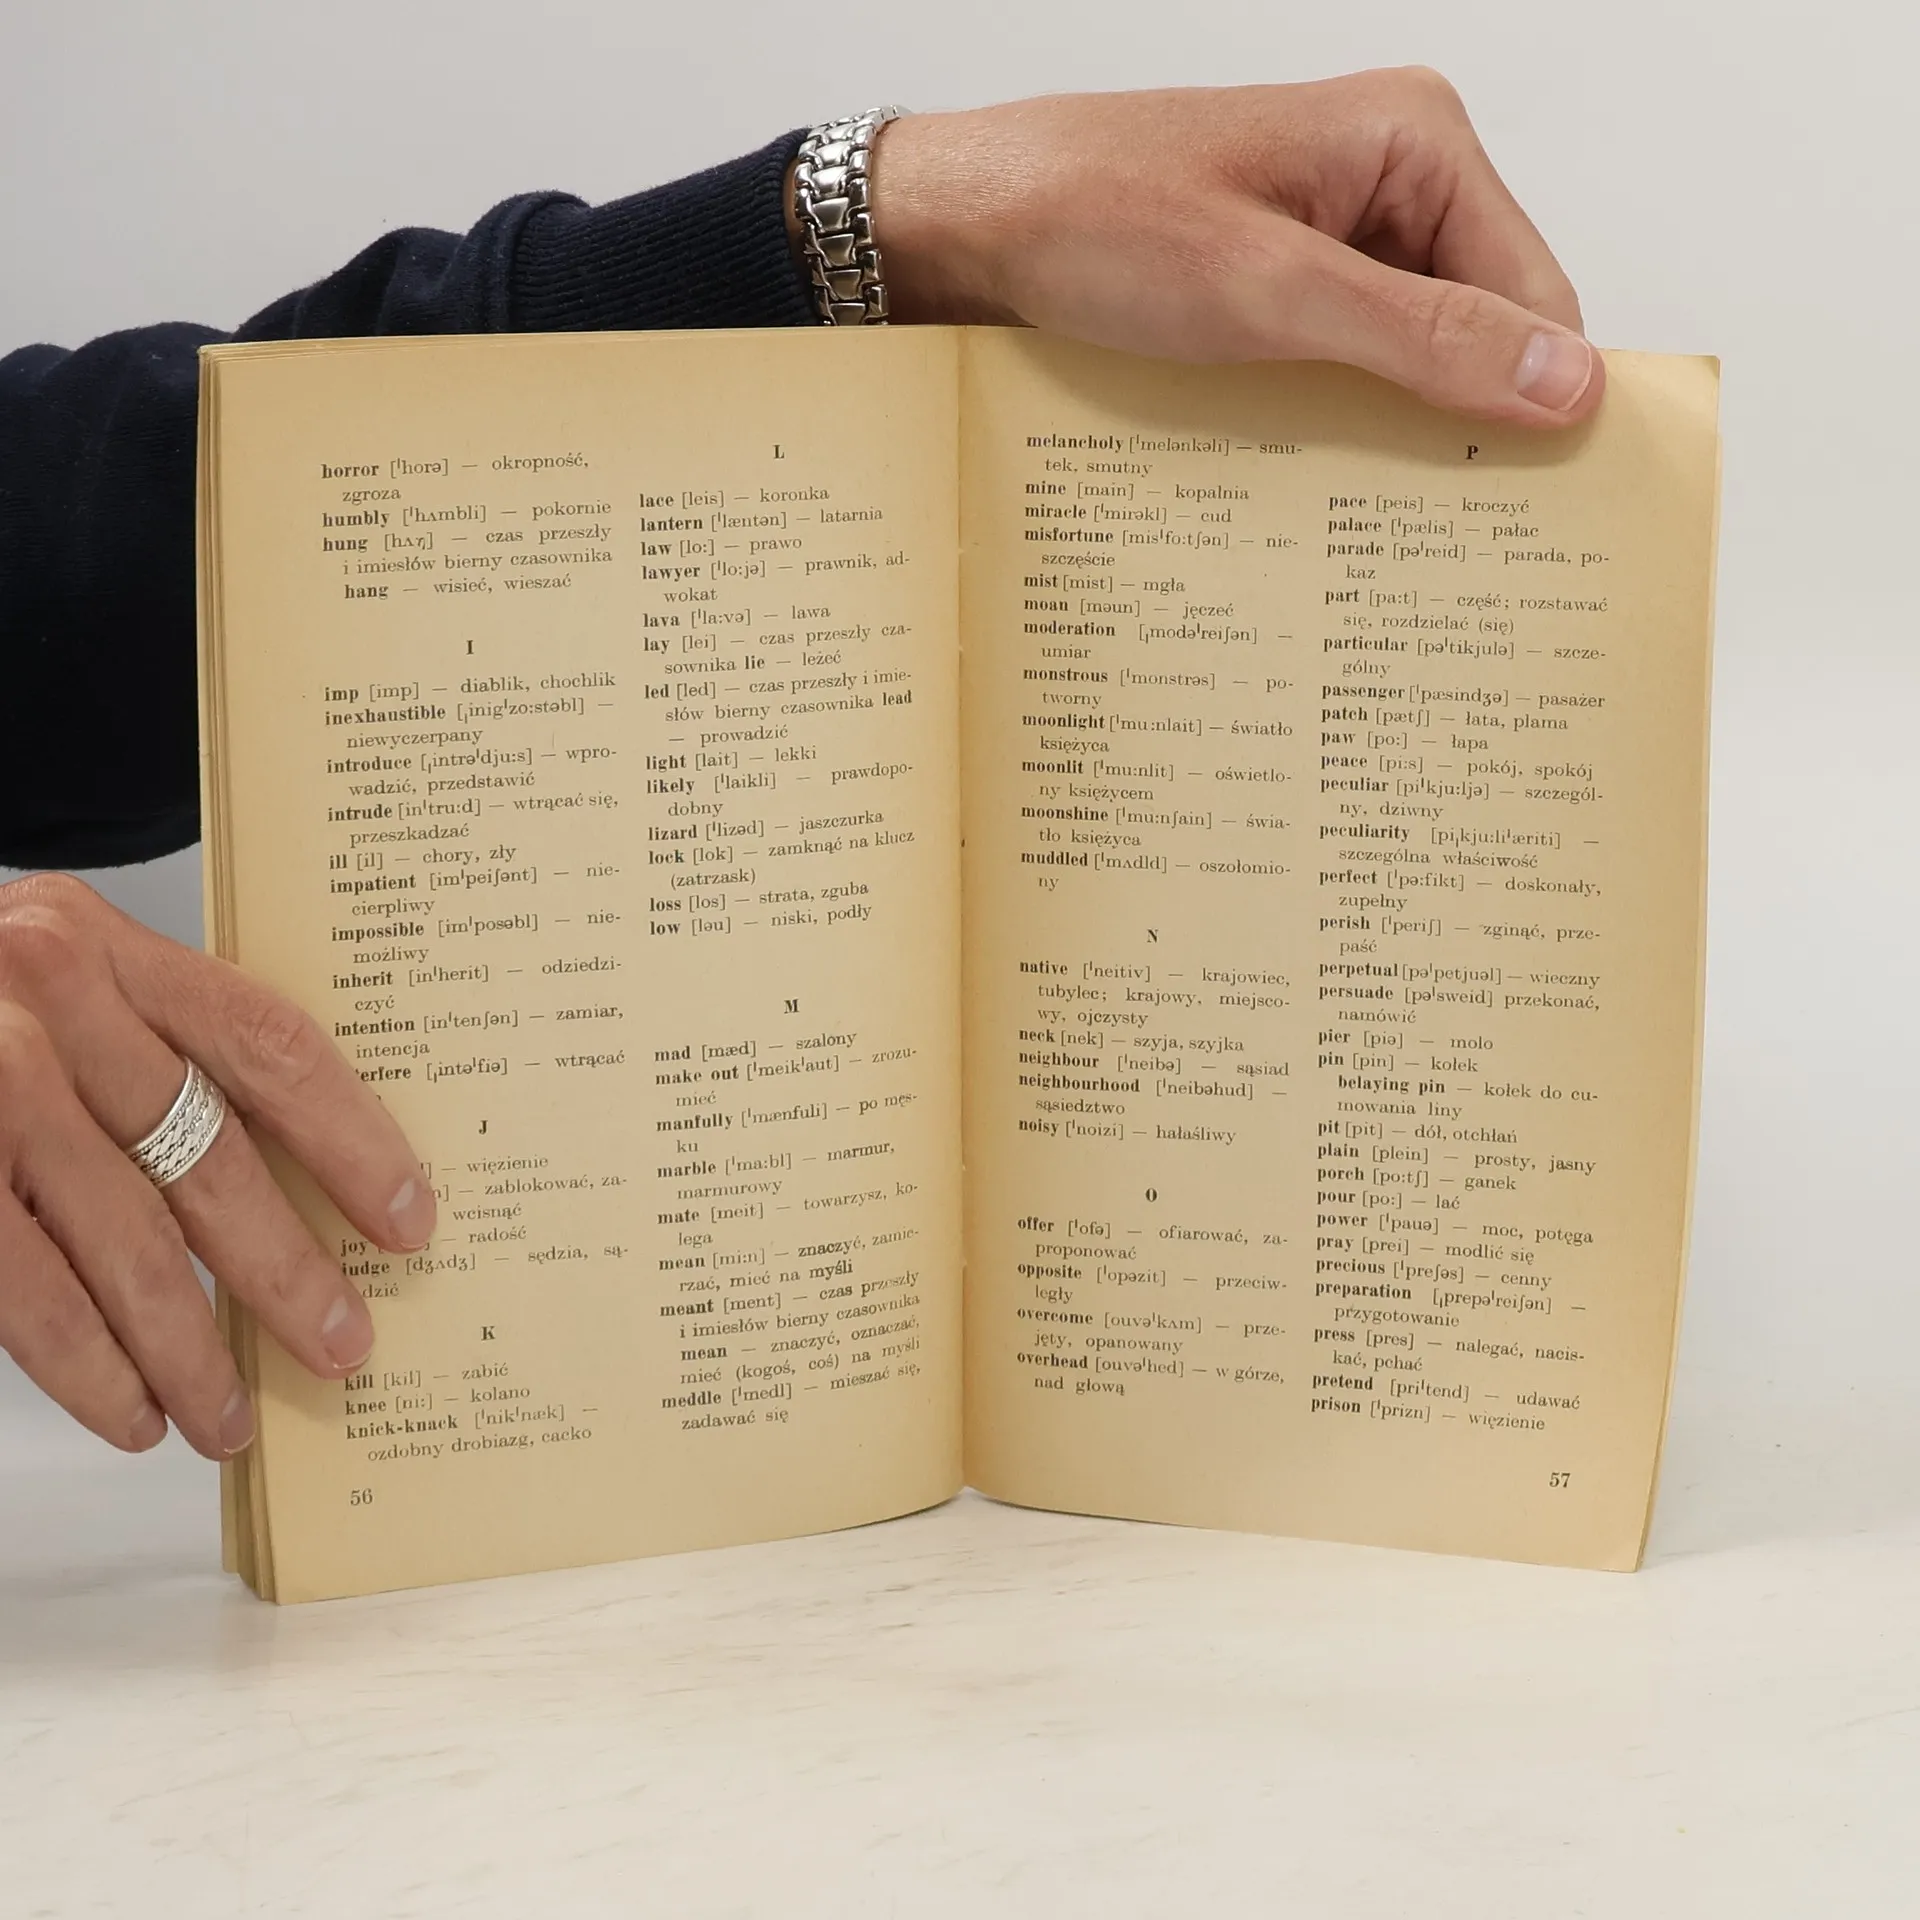 horror [ˈhorə] — okropność,
zgroza
humbly [ˈhʌmbli] — pokornie
hung [hʌŋ] — czas przeszły
i imiesłów bierny czasownika
hang — wisieć, wieszać
I
imp [imp] — diablik, chochlik
inexhaustible [ˌinigˈzo:stəbl] —
niewyczerpany
introduce [ˌintrəˈdju:s] — wpro-
wadzić, przedstawić
intrude [inˈtru:d] — wtrącać się,
przeszkadzać
ill [il] — chory, zły
impatient [imˈpeiʃənt] — nie-
cierpliwy
impossible [imˈposəbl] — nie-
możliwy
inherit [inˈherit] — odziedzi-
czyć
intention [inˈtenʃən] — zamiar,
intencja
terfere [ˌintəˈfiə] — wtrącać
J
— więzienie
— zablokować, za-
wcisnąć
joy — radość
judge [dʒʌdʒ] — sędzia, są-
dzić
K
kill [kil] — zabić
knee [ni:] — kolano
knick-knack [ˈnikˈnæk] —
ozdobny drobiazg, cacko
56
L
lace [leis] — koronka
lantern [ˈlæntən] — latarnia
law [lo:] — prawo
lawyer [ˈlo:jə] — prawnik, ad-
wokat
lava [ˈla:və] — lawa
lay [lei] — czas przeszły cza-
sownika lie — leżeć
led [led] — czas przeszły i imie-
słów bierny czasownika lead
— prowadzić
light [lait] — lekki
likely [ˈlaikli] — prawdopo-
dobny
lizard [ˈlizəd] — jaszczurka
lock [lok] — zamknąć na klucz
(zatrzask)
loss [los] — strata, zguba
low [ləu] — niski, podły
M
mad [mæd] — szalony
make out [ˈmeikˈaut] — zrozu-
mieć
manfully [ˈmænfuli] — po męs-
ku
marble [ˈma:bl] — marmur,
marmurowy
mate [meit] — towarzysz, ko-
lega
mean [mi:n] — znaczyć, zamie-
rzać, mieć na myśli
meant [ment] — czas przeszły
i imiesłów bierny czasownika
mean — znaczyć, oznaczać,
mieć (kogoś, coś) na myśli
meddle [ˈmedl] — mieszać się,
zadawać się
melancholy [ˈmelənkəli] — smu-
tek, smutny
mine [main] — kopalnia
miracle [ˈmirəkl] — cud
misfortune [misˈfo:tʃən] — nie-
szczęście
mist [mist] — mgła
moan [məun] — jęczeć
moderation [ˌmodəˈreiʃən] —
umiar
monstrous [ˈmonstrəs] — po-
tworny
moonlight [ˈmu:nlait] — światło
księżyca
moonlit [ˈmu:nlit] — oświetlo-
ny księżycem
moonshine [ˈmu:nʃain] — świa-
tło księżyca
muddled [ˈmʌdld] — oszołomio-
ny
N
native [ˈneitiv] — krajowiec,
tubylec; krajowy, miejsco-
wy, ojczysty
neck [nek] — szyja, szyjka
neighbour [ˈneibə] — sąsiad
neighbourhood [ˈneibəhud] —
sąsiedztwo
noisy [ˈnoizi] — hałaśliwy
O
offer [ˈofə] — ofiarować, za-
proponować
opposite [ˈopəzit] — przeciw-
legły
overcome [ouvəˈkʌm] — prze-
jęty, opanowany
overhead [ouvəˈhed] — w górze,
nad głową
P
pace [peis] — kroczyć
palace [ˈpælis] — pałac
parade [pəˈreid] — parada, po-
kaz
part [pa:t] — część; rozstawać
się, rozdzielać (się)
particular [pəˈtikjulə] — szcze-
gólny
passenger [ˈpæsindʒə] — pasażer
patch [pætʃ] — łata, plama
paw [po:] — łapa
peace [pi:s] — pokój, spokój
peculiar [piˈkju:ljə] — szczegól-
ny, dziwny
peculiarity [piˌkju:liˈæriti] —
szczególna właściwość
perfect [ˈpə:fikt] — doskonały,
zupełny
perish [ˈperiʃ] — zginąć, prze-
paść
perpetual [pəˈpetjuəl] — wieczny
persuade [pəˈsweid] przekonać,
namówić
pier [piə] — molo
pin [pin] — kołek
belaying pin — kołek do cu-
mowania liny
pit [pit] — dół, otchłań
plain [plein] — prosty, jasny
porch [po:tʃ] — ganek
pour [po:] — lać
power [ˈpauə] — moc, potęga
pray [prei] — modlić się
precious [ˈpreʃəs] — cenny
preparation [ˌprepəˈreiʃən] —
przygotowanie
press [pres] — nalegać, nacis-
kać, pchać
pretend [priˈtend] — udawać
prison [ˈprizn] — więzienie
57